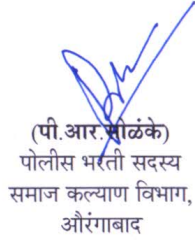 (पी.आर.सोळंके)
पोलीस भरती सदस्य
समाज कल्याण विभाग,
औरंगाबाद